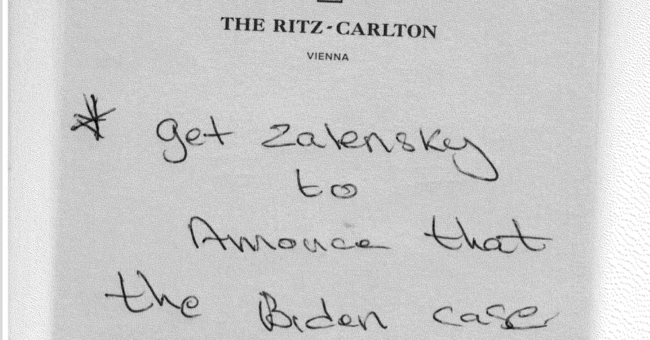 THE RITZ-CARLTON
VIENNA
* get Zalensky
to
Annouce that
the Biden case